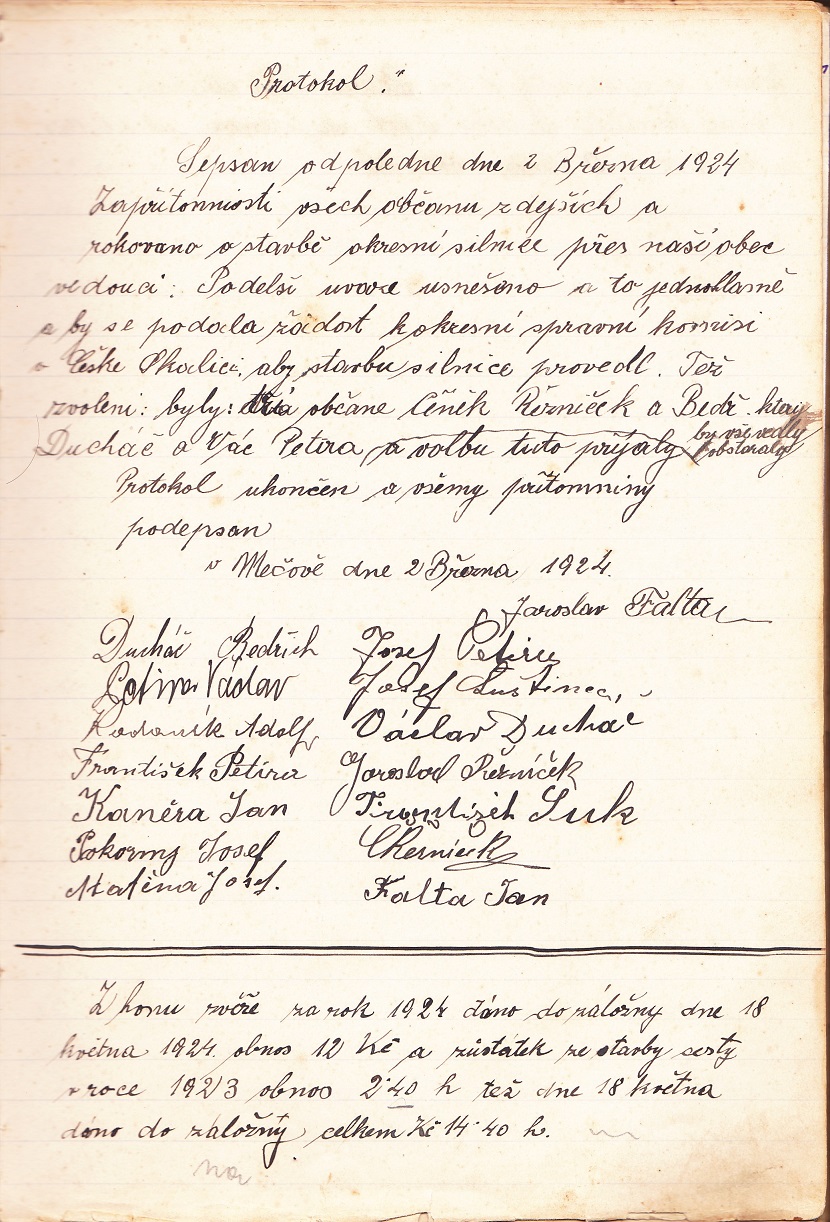 Protokol."
Sepsan odpoledne dne 2 Března 1924
Zapřítomniosti všech občanu zdejšich a
rokovano o stavbě okresní silnice přes naši obec
vedouci: Podelší uvaze usnešeno a to jednohlasně
a by se podala žádost k okresní spravní komisi
v Česke Skalici, aby stavbu silnice provedl. Též
zvoleni: byly: občane Čeněk Řezníček a Bedř. kteři
Ducháč a Vác Petira, a volbu tuto přijaly by vše vedly
obstaraly
Protokol ukončen a všemy přitomniny
podepsan
v Mečově dne 2 Března 1924.
Jaroslav Falta
Ducháč Bedřich Josef Petira
Petira Václav Josef Luštinec,
Adolf Václav Ducháč
František Petira Jaroslav Řezníček
Kaněra Jan František Suk
Pokorny Josef Č Řezníček
Matěna Josef. Falta Jan
Z honu zvěře za rok 1924 dáno do záložny dne 18
května 1924. obnos 12 Kč a zůstátek ze stavby cesty
v roce 1923 obnos 2·40 h též dne 18 května
dáno do záložny celkem Kč 14·40 h.